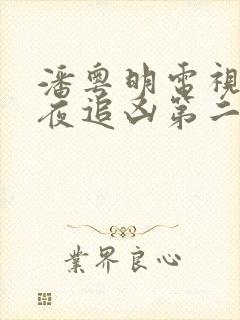 潘粤明電視
夜追凶第二
業界良心